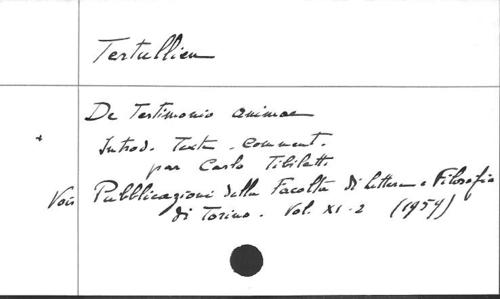 Tertullien
De Testimonio animae
+
Introd. Texte. comment.
par Carlo Tibiletti
Voir Pubblicazioni della Facoltà di lettere e Filosofia
di Torino. Vol. XI-2 (1959)